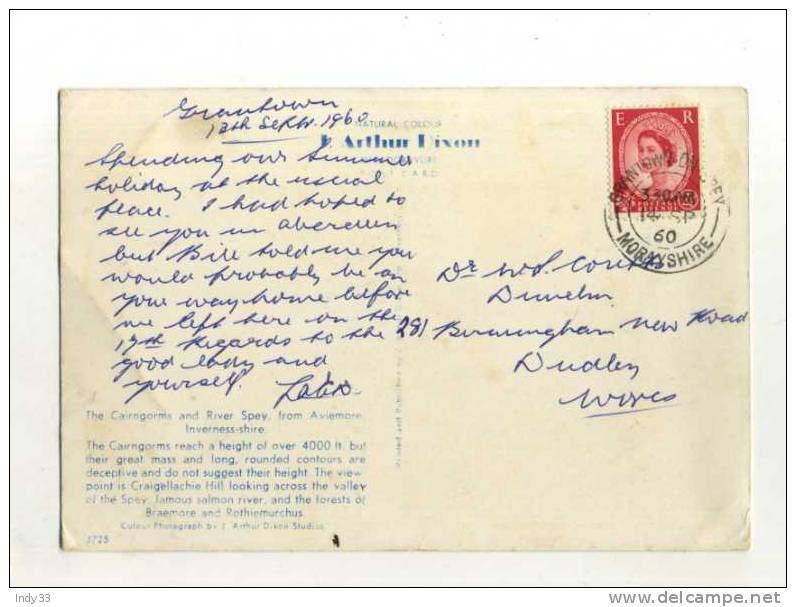 Grantown
13th Sept. 1960
NATURAL COLOUR
J. Arthur Dixon
POST CARD
Spending our summer
holiday at the usual
place. I had hoped to
see you in aberdeen
but Bill told me you
would probably be on
your way home before
we left here on the
17th Regards to the
good lady and
yourself.
The Cairngorms and River Spey, from Aviemore,
Inverness-shire.
The Cairngorms reach a height of over 4000 ft. but
their great mass and long, rounded contours are
deceptive and do not suggest their height. The view
point is Craigellachie Hill looking across the valley
of the Spey, famous salmon river, and the forests of
Braemore and Rothiemurchus.
Colour Photograph by J. Arthur Dixon Studios.
Printed and Published by
E R
GRANTOWN-ON-SPEY
3-30PM
14 SP
60
MORAYSHIRE
Dr. Coutts
281 Birmingham New Road
Dudley
Worcs
Indy33
www.delcampe.net